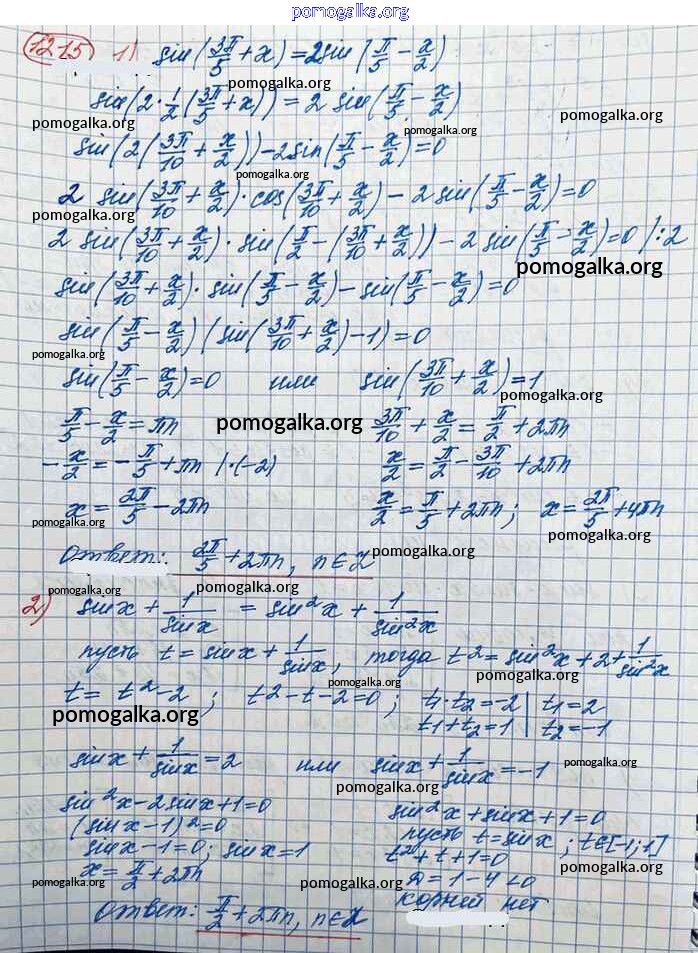 pomogalka.org
1215 1) sin(3π/5 + x) = 2sin(π/5 − x/2)
sin(2·1/2(3π/5 + x)) = 2 sin(π/5 − x/2)
pomogalka.org pomogalka.org
pomogalka.org
sin(2(3π/10 + x/2)) − 2sin(π/5 − x/2) = 0
pomogalka.org
2 sin(3π/10 + x/2)·cos(3π/10 + x/2) − 2 sin(π/5 − x/2) = 0
pomogalka.org
2 sin(3π/10 + x/2)·sin(π/2 − (3π/10 + x/2)) − 2 sin(π/5 − x/2) = 0 /:2
pomogalka.org
sin(3π/10 + x/2)·sin(π/5 − x/2) − sin(π/5 − x/2) = 0
sin(π/5 − x/2)(sin(3π/10 + x/2) − 1) = 0
pomogalka.org
sin(π/5 − x/2) = 0 или sin(3π/10 + x/2) = 1
π/5 − x/2 = πn 3π/10 + x/2 = π/2 + 2πn
pomogalka.org
−x/2 = −π/5 + πn /·(−2) x/2 = π/2 − 3π/10 + 2πn
x = 2π/5 − 2πn x/2 = π/5 + 2πn; x = 2π/5 + 4πn
pomogalka.org pomogalka.org
Ответ: 2π/5 + 2πn, n∈Z
pomogalka.org pomogalka.org
2) sin x + 1/sin x = sin²x + 1/sin²x
пусть t = sin x + 1/sin x, тогда t² = sin²x + 2 + 1/sin²x
pomogalka.org pomogalka.org
t = t² − 2; t² − t − 2 = 0; t₁·t₂ = −2 | t₁ = 2
t₁ + t₂ = 1 | t₂ = −1
pomogalka.org
sin x + 1/sin x = 2 или sin x + 1/sin x = −1
pomogalka.org
pomogalka.org
sin²x − 2sin x + 1 = 0 sin²x + sin x + 1 = 0
pomogalka.org
(sin x − 1)² = 0 пусть t = sin x; t∈[−1; 1]
sin x − 1 = 0; sin x = 1 t² + t + 1 = 0
pomogalka.org
x = π/2 + 2πn D = 1 − 4 < 0
pomogalka.org pomogalka.org
корней нет
Ответ: π/2 + 2πn, n∈Z